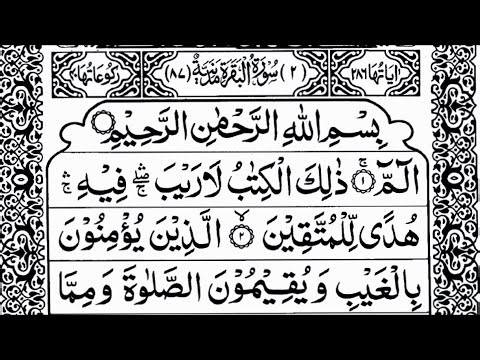 اٰیَاتُهَا ٢٨٦ (٢) سُوْرَةُ الْبَقَرَةِ مَدَنِيَّةٌ (٨٧) رُكُوْعَاتُهَا ٤٠
بِسْمِ اللّٰهِ الرَّحْمٰنِ الرَّحِيْمِ
الٓمّٓ ۚ﴿١﴾ ذٰلِكَ الْكِتٰبُ لَا رَيْبَ ۛۖ فِيْهِ ۛۚ
هُدًى لِّلْمُتَّقِيْنَ ۙ﴿٢﴾ الَّذِيْنَ يُؤْمِنُوْنَ
بِالْغَيْبِ وَيُقِيْمُوْنَ الصَّلٰوةَ وَمِمَّا